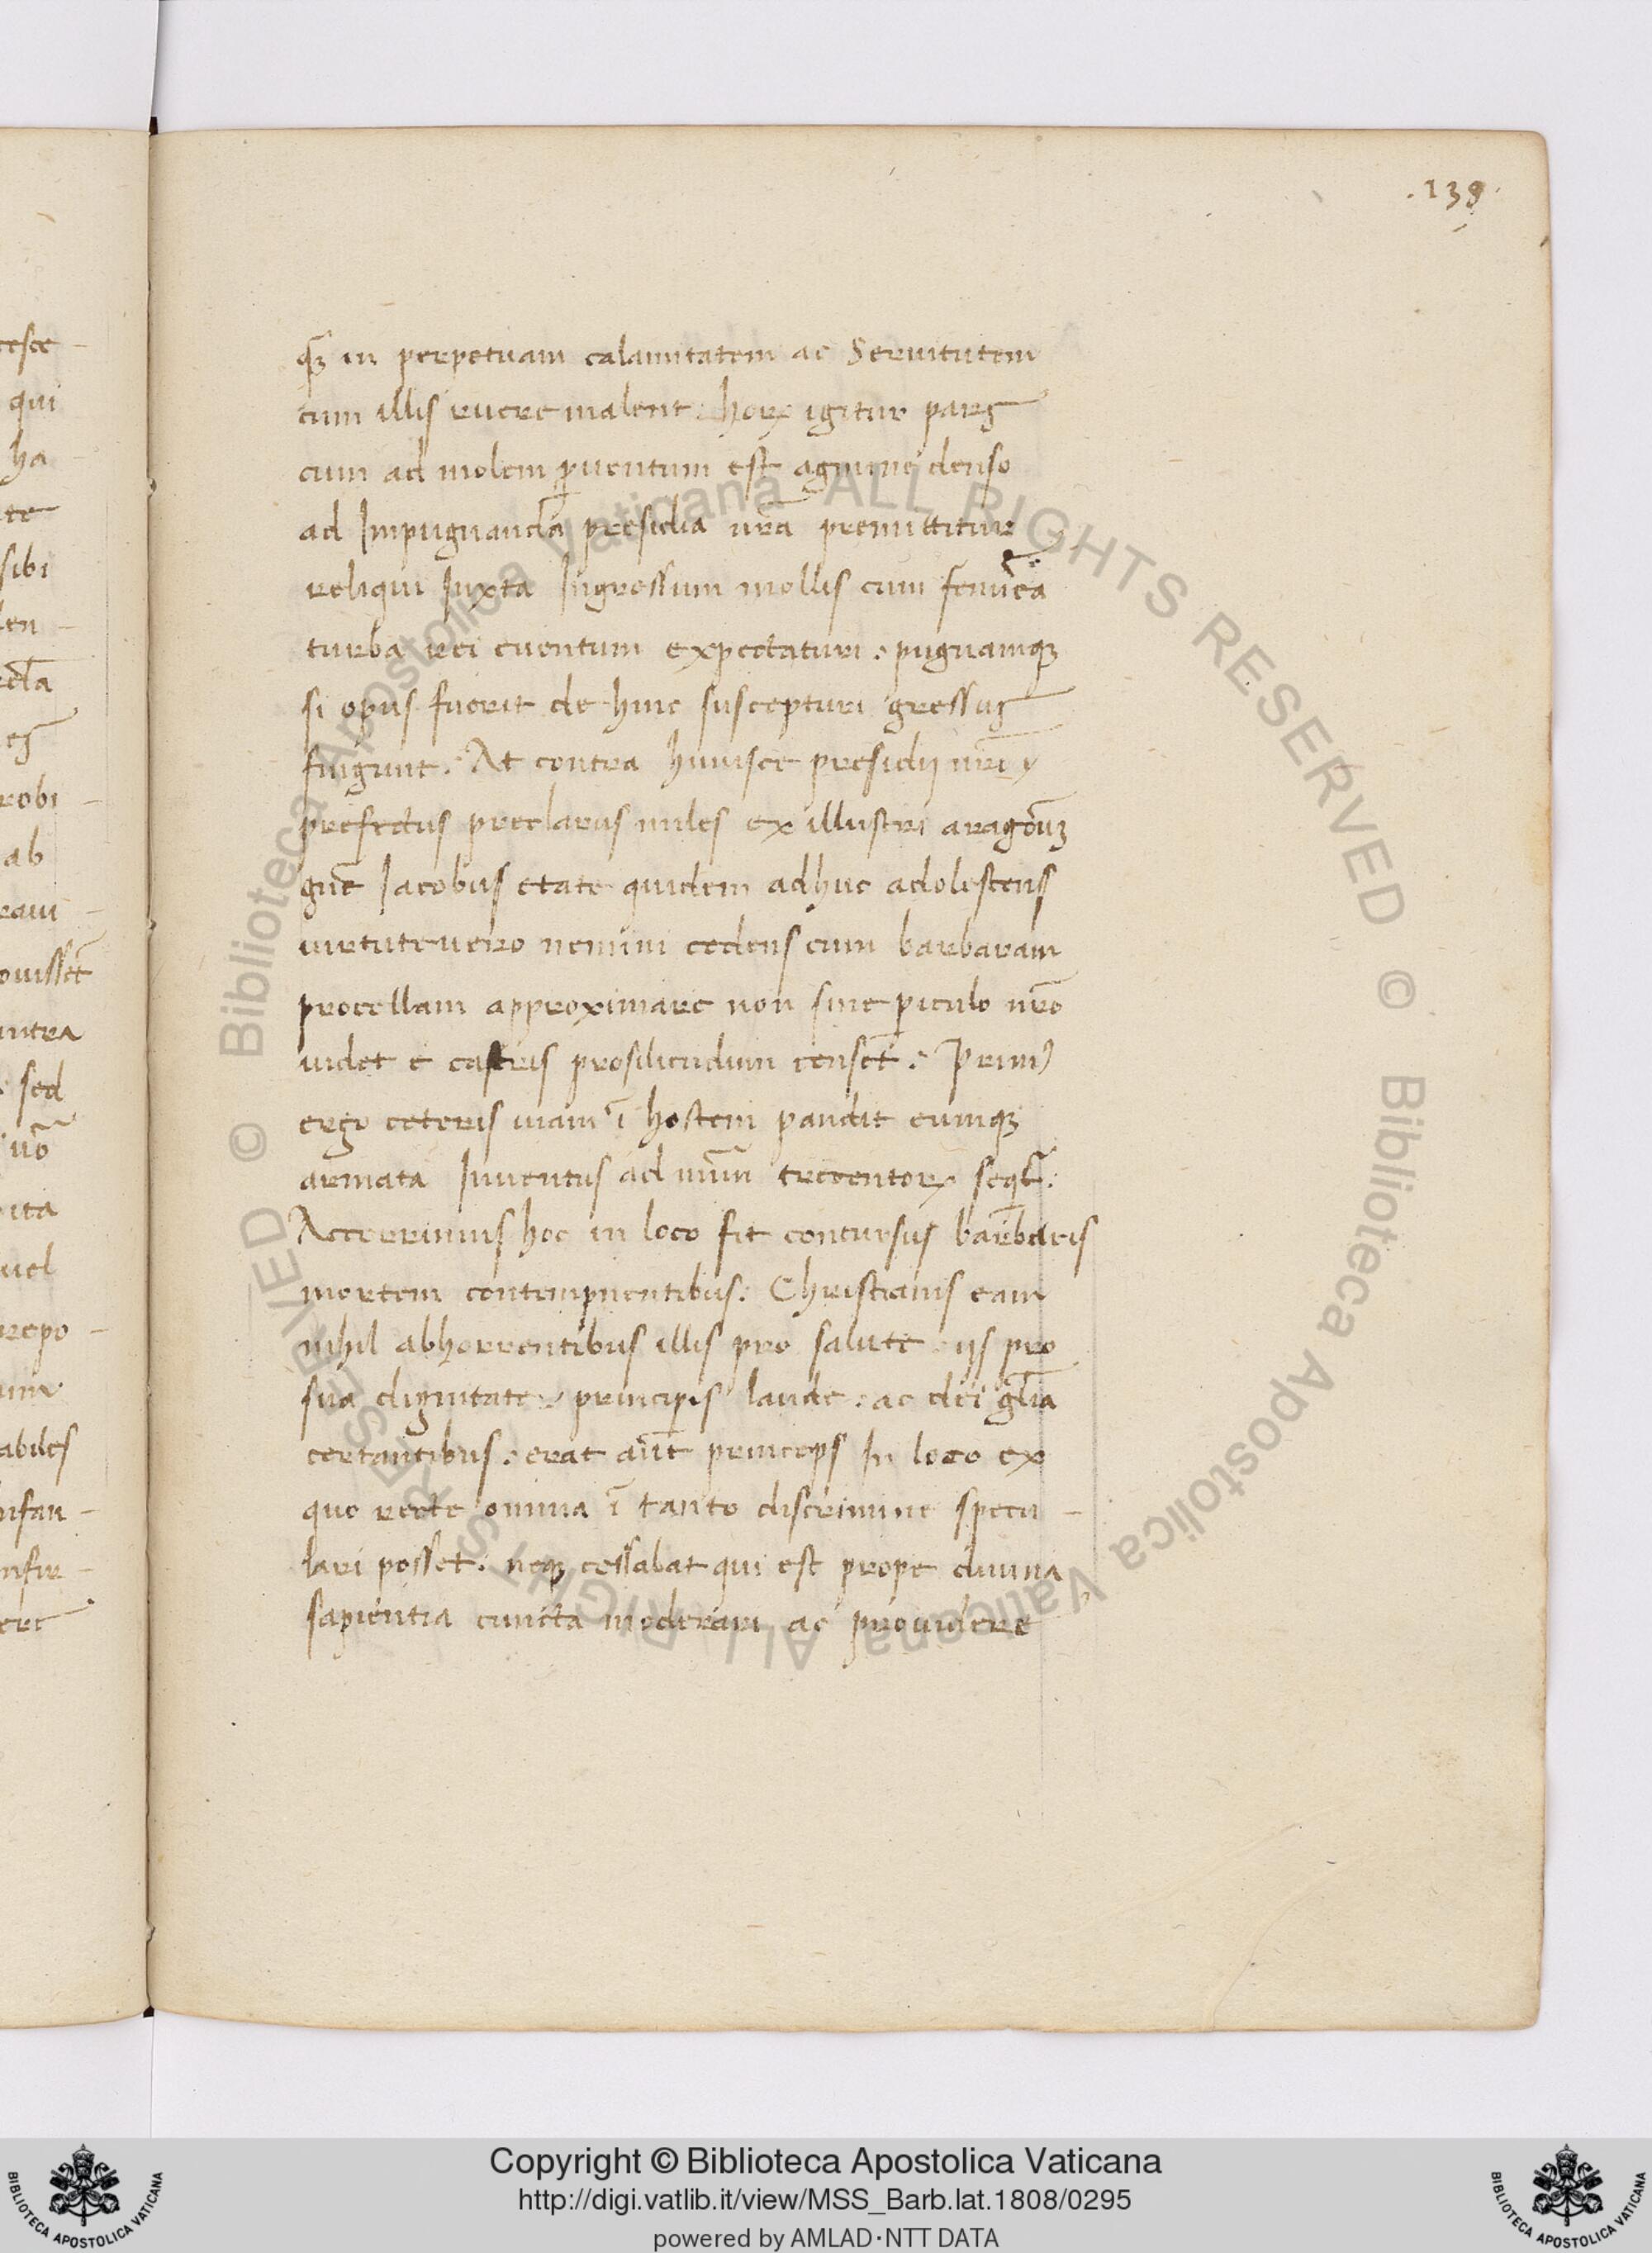 .139.
qȝ in perpetuam calamitatem ac Seruitutem
cum illis ruere malent. hoꝝ igitur pars
cum ad molem ꝑuentum est agmine denso
ad Impugnanda presidia nr̄a premittitur
reliqui Iuxta Ingressum mollis cum feminea
turba rei euentum expectaturi. pugnamqȝ
si opus fuerit de hinc suscepturi gressus
figunt. At contra huiusce presidij nr̄i
prefectus preclarus miles ex illustri aragonuȝ
gn̄te Iacobus etate quidem adhuc adolescens
uirtute uero nemini cedens cum barbaram
procellam approximare non sine ꝑiculo nr̄o
uidet e castris prosiliendum censet. Primꝰ
ergo ceteris uiam ī hostem pandit eumqȝ
armata Iuuentus ad nūm trecentoꝝ seqt̄.
Acerrimus hoc in loco fit concursus barbaris
mortem contempnentibus. Christianis eam
nihil abhorrentibus illis pro salute ijs pro
sua dignitate, principis laude. ac dei gl̄ia
certantibus. erat aūt princeps In loco ex
quo recte omnia ī tanto discrimine specu-
lari posset. neqȝ cessabat qui est prope diuina
sapientia cuncta moderari ac prouidere
cesce-
qui
ha
te
sibi
len-
es
robi-
ab
raui-
ouisset
intra
sed
uō
ita
uel
repo-
abiles
nfan-
nfir-
ere
© Biblioteca Apostolica Vaticana ALL RIGHTS RESERVED © Biblioteca Apostolica Vaticana ALL RIGHTS RESERVED
Copyright © Biblioteca Apostolica Vaticana
http://digi.vatlib.it/view/MSS_Barb.lat.1808/0295
powered by AMLAD·NTT DATA
BIBLIOTECA APOSTOLICA VATICANA
BIBLIOTECA APOSTOLICA VATICANA